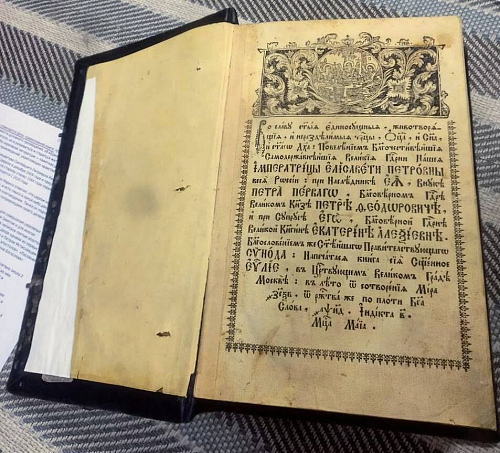 Во славу ст҃ыѧ єдиносущныѧ, животворѧ-
щїѧ, и нераздѣлимыѧ тр҃цы, Ѻц҃а, и Сн҃а,
и ст҃агѡ Дх҃а: Повелѣнїемъ Благочестивѣйшїѧ
Самодержавнѣйшїѧ Великїѧ Гдрни Нашеѧ
ІМПЕРАТРИЦЫ ЕЛІСАВЕТЫ ПЕТРОВНЫ
всеѧ Рѡссїи: при Наслѣдникѣ ЕѦ, Внукѣ
ПЕТРА ПЕРВАГѠ, Благовѣрномъ Гдрѣ
Великомъ Кнзѣ ПЕТРѢ ѲЕОДѠРОВИЧѢ,
и при Супругѣ ЕГѠ, Благовѣрной Гдрнѣ
Великой Кнгинѣ ЕКАТЕРИНѢ АЛЕѮІЕВНѢ.
Благословенїемъ же Ст҃ѣйшагѡ Правительствующагѡ
СѴНОДА: Напечатасѧ книга сїѧ Сщ҃енное
ЕѴ҃ЛІЕ, въ Црствующемъ Великомъ Градѣ
Москвѣ: въ лѣто ѿ сотворенїѧ Мїра
ѿ ржтва же по плоти Бг҃а
Слова, Їндїкта
Мцⷭ҇а Маїа.